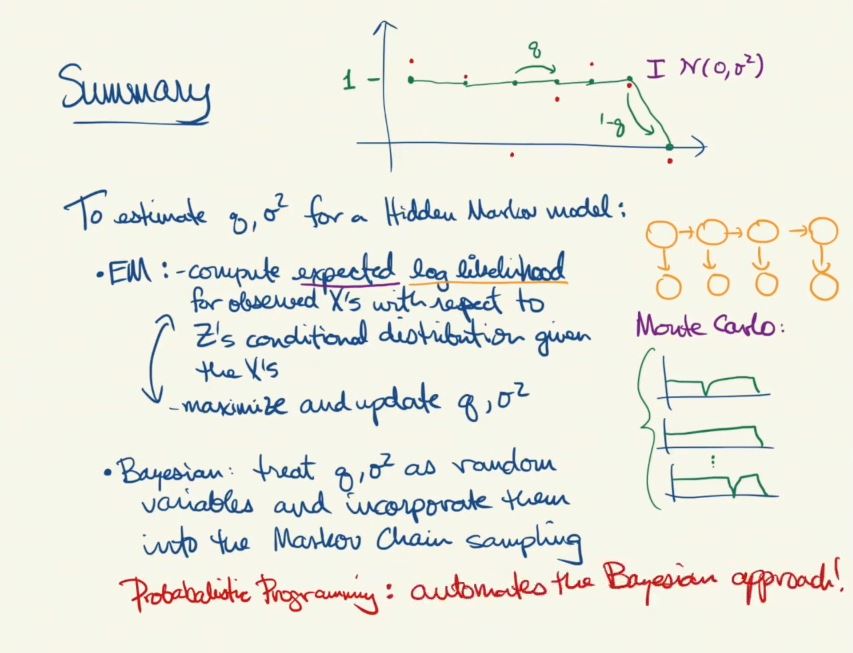 Summary
1
q
I N(0,σ²)
1-q
To estimate q,σ² for a Hidden Markov model:
•EM: -compute expected log likelihood
for observed X's with respect to
Z's conditional distribution given
the X's
-maximize and update q,σ²
Monte Carlo:
⋮
•Bayesian: treat q,σ² as random
variables and incorporate them
into the Markov Chain sampling
Probabalistic Programming: automates the Bayesian approach!